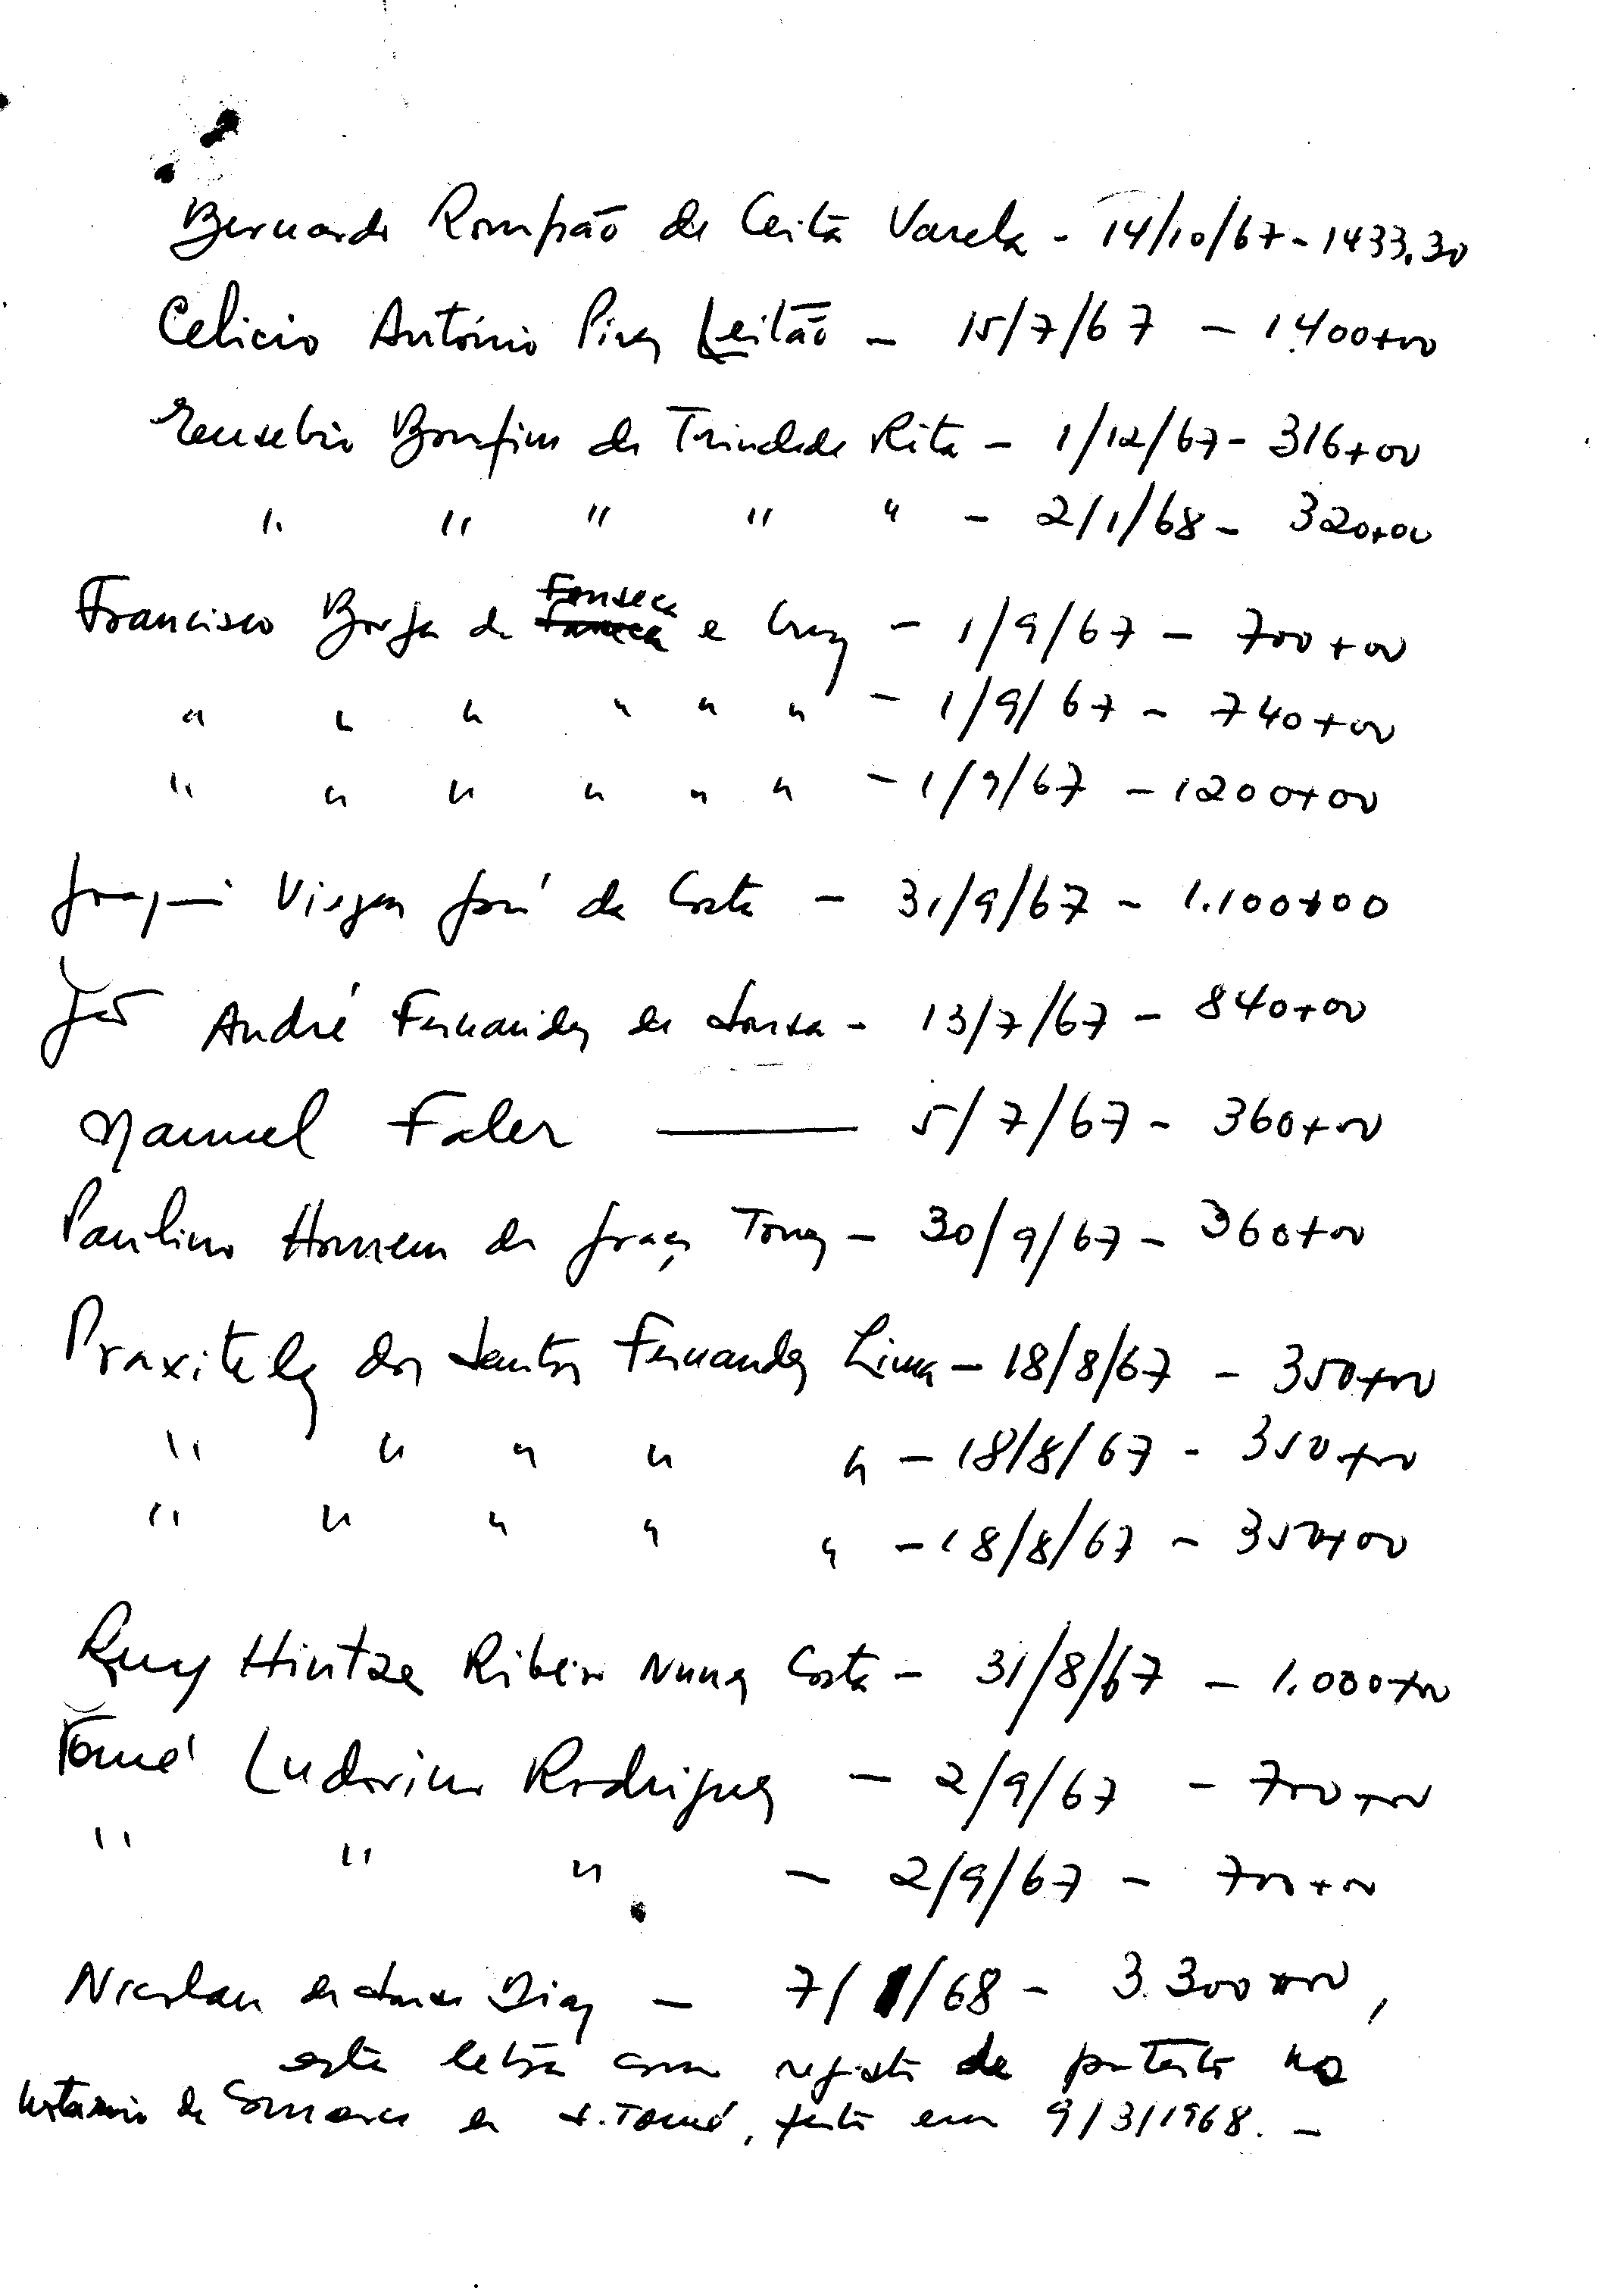 Bernardo Rompão de Ceita Varela - 14/10/67 - 1433.30
Celicio António Pires Leitão - 15/7/67 - 1.400+00
Eeusebio Bomfim da Trindade Rita - 1/12/67 - 316+00
" " " " " - 2/1/68 - 320+00
Francisco Borja da Fonseca e Cruz - 1/9/67 - 700+00
" " " " " " - 1/9/67 - 740+00
" " " " " " - 1/9/67 - 1200+00
Joaquim Viegas José da Costa - 31/9/67 - 1.100+00
João André Fernandes de Sousa - 13/7/67 - 840+00
Manuel Faler — 5/7/67 - 360+00
Paulino Homem da Graça Torres - 30/9/67 - 360+00
Praxiteles dos Santos Fernandes Lima - 18/8/67 - 350+00
" " " " " - 18/8/67 - 350+00
" " " " " - 18/8/67 - 350+00
Ruy Hintze Ribeiro Nunes Costa - 31/8/67 - 1.000+00
Tomé Ludovino Rodrigues - 2/9/67 - 700+00
" " " - 2/9/67 - 700+00
Nicolau de Sousa Dias - 7/1/68 - 3.300+00,
esta letra com registo de protesto no
Notário da Comarca de S. Tomé, feito em 9/3/1968. -